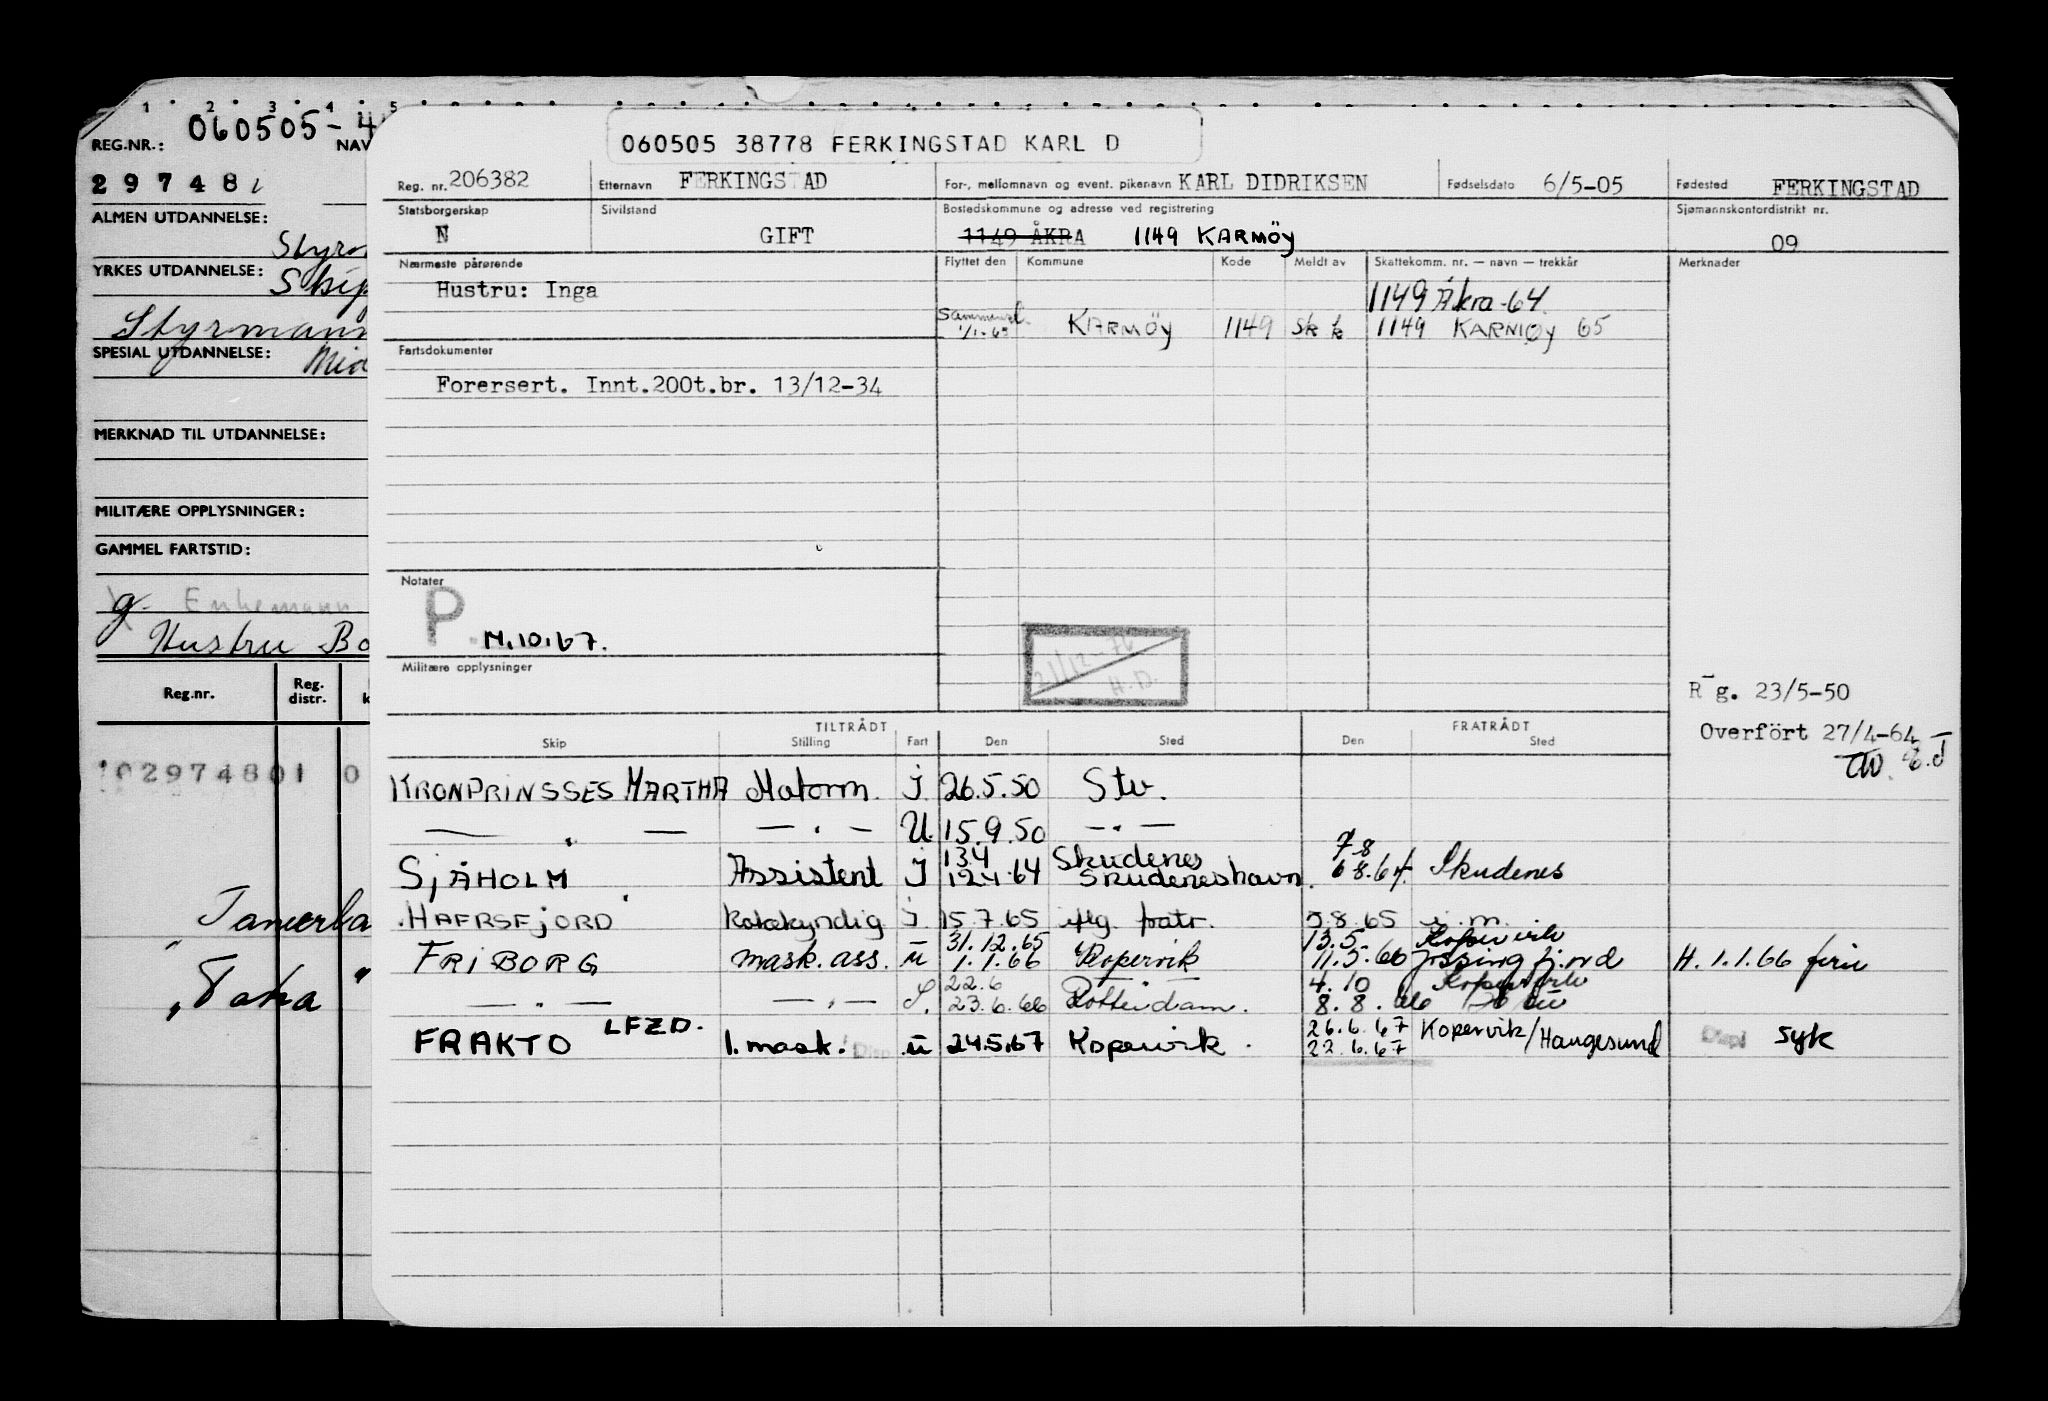 1 2 3 4 5
REG.NR.: 060505-4 NAV
29748
ALMEN UTDANNELSE:
YRKES UTDANNELSE:
SPESIAL UTDANNELSE:
MERKNAD TIL UTDANNELSE:
MILITÆRE OPPLYSNINGER:
GAMMEL FARTSTID:
g. Enkemann
Hustru Bo
Reg.nr. Reg. distr. k
102974801 0
"Toka"
060505 38778 FERKINGSTAD KARL D
Reg. nr. 206382 Etternavn FERKINGSTAD For-, mellomnavn og event. pikenavn KARL DIDRIKSEN Fødselsdato 6/5-05 Fødested FERKINGSTAD
Statsborgerskap N Sivilstand GIFT Bostedskommune og adresse ved registrering 1149 ÅKRA 1149 KARMÖY Sjømannskontordistrikt nr. 09
Nærmeste pårørende Flyttet den Kommune Kode Meldt av Skattekomm. nr. — navn — trekkår Merknader
Hustru: Inga 1149 Åkra-64.
1/1-65 KARMÖY 1149 Sk k 1149 KARMÖY 65
Fartsdokumenter
Forersert. Innt.200t.br. 13/12-34
Notater
P M.10.67.
21/12-76
H.D.
Militære opplysninger
R g. 23/5-50
Overfört 27/4-64
TILTRÅDT FRATRÅDT
Skip Stilling Fart Den Sted Den Sted
KRONPRINSSES MARTHA Matorm. I. 26.5.50 Stv.
— " — — " — U. 15.9.50 — " —
13.4 Skudenes 7.8
SJÅHOLM Assistent I 12.4.64 Skudeneshavn. 6.8.64. Skudenes
HAFRSFJORD Kokekyndig I. 15.7.65 iflg. fratr. 5.8.65 i.m.
31.12.65 13.5. Kopervik
FRIBORG mask.ass. U 1.1.66 Kopervik 11.5.66 Jøssingfjord H. 1.1.66
22.6 4.10 Kopervik
— " — — " — S. 23.6.66 Rotterdam. 8.8.66
LFZD. 26.6.67
FRAKTO 1. mask. U 24.5.67 Kopervik. 22.6.67 Kopervik/Haugesund syk